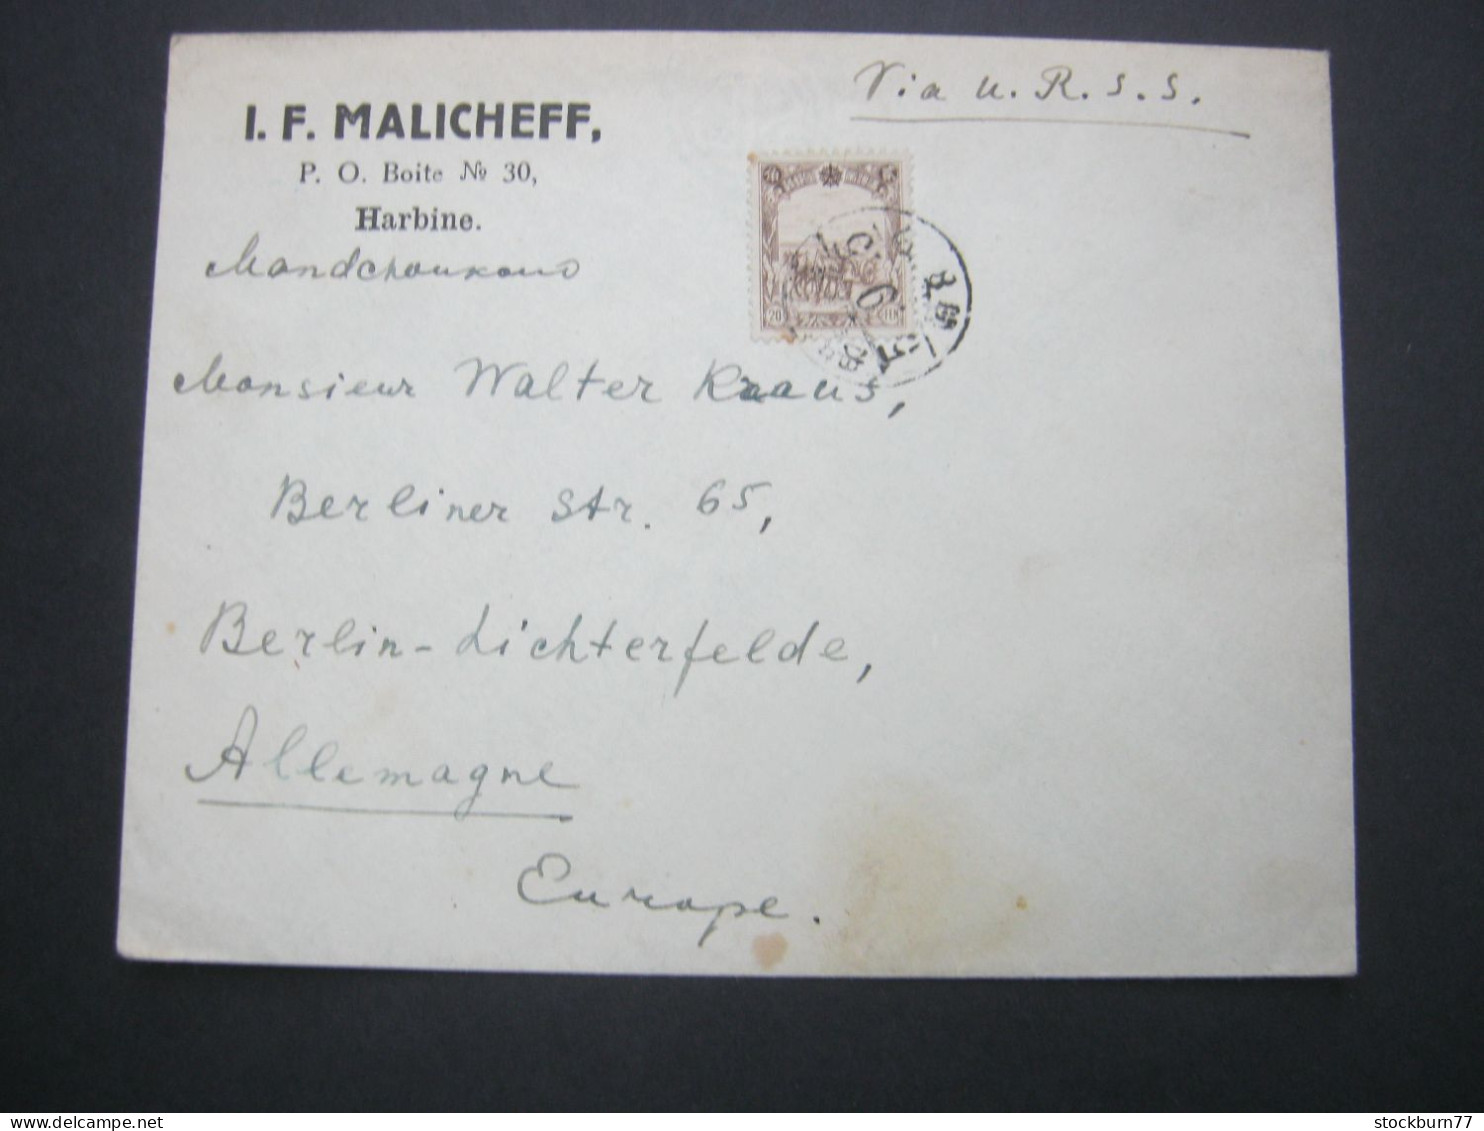 Via U.R.S.S.
I. F. MALICHEFF,
P. O. Boite № 30,
Harbine.
Mandchoukouo
20
Monsieur Walter Kraus,
Berliner Str. 65,
Berlin-Lichterfelde,
Allemagne
Europe.
stockburn77